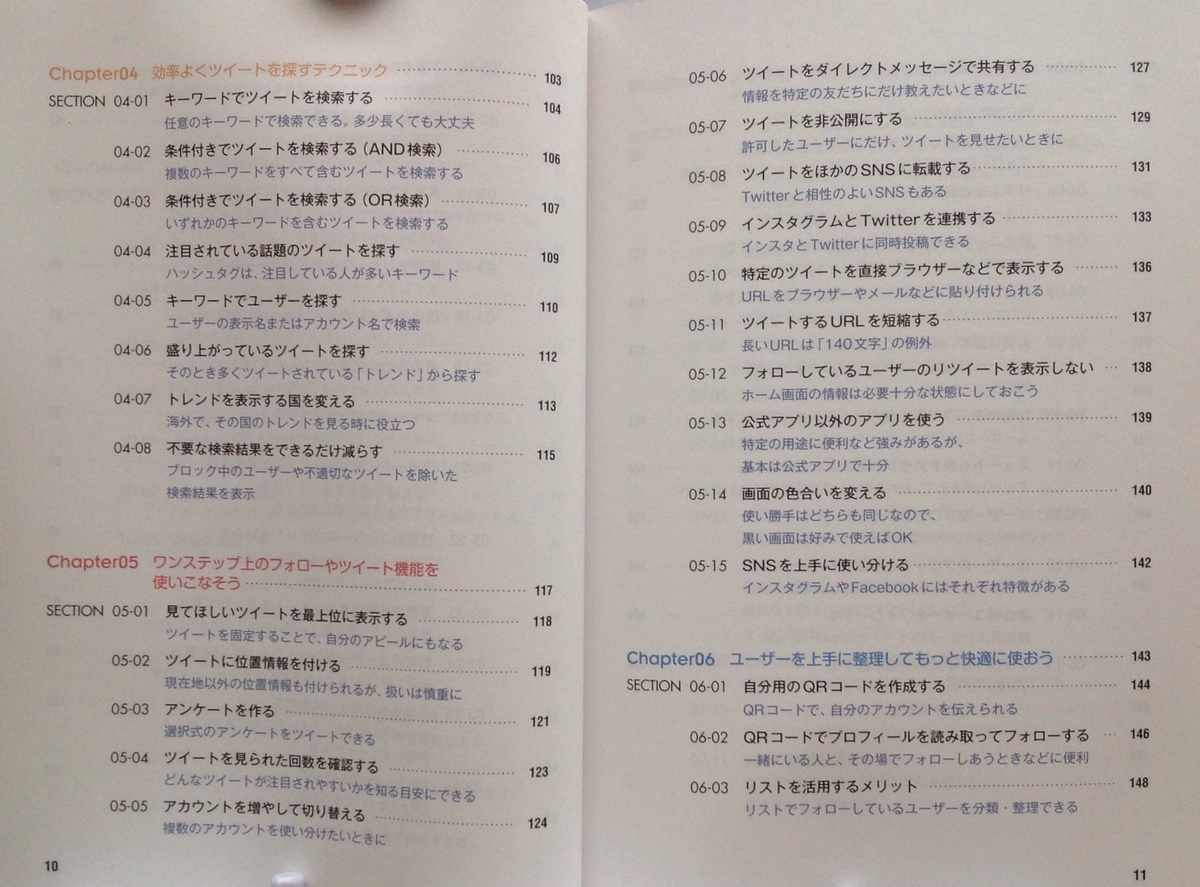 Chapter04 効率よくツイートを探すテクニック 103
SECTION 04-01 キーワードでツイートを検索する 104
任意のキーワードで検索できる。多少長くても大丈夫
04-02 条件付きでツイートを検索する（AND検索） 106
複数のキーワードをすべて含むツイートを検索する
04-03 条件付きでツイートを検索する（OR検索） 107
いずれかのキーワードを含むツイートを検索する
04-04 注目されている話題のツイートを探す 109
ハッシュタグは、注目している人が多いキーワード
04-05 キーワードでユーザーを探す 110
ユーザーの表示名またはアカウント名で検索
04-06 盛り上がっているツイートを探す 112
そのとき多くツイートされている「トレンド」から探す
04-07 トレンドを表示する国を変える 113
海外で、その国のトレンドを見る時に役立つ
04-08 不要な検索結果をできるだけ減らす 115
ブロック中のユーザーや不適切なツイートを除いた
検索結果を表示
Chapter05 ワンステップ上のフォローやツイート機能を
使いこなそう 117
SECTION 05-01 見てほしいツイートを最上位に表示する 118
ツイートを固定することで、自分のアピールにもなる
05-02 ツイートに位置情報を付ける 119
現在地以外の位置情報も付けられるが、扱いは慎重に
05-03 アンケートを作る 121
選択式のアンケートをツイートできる
05-04 ツイートを見られた回数を確認する 123
どんなツイートが注目されやすいかを知る目安にできる
05-05 アカウントを増やして切り替える 124
複数のアカウントを使い分けたいときに
10
05-06 ツイートをダイレクトメッセージで共有する 127
情報を特定の友だちにだけ教えたいときなどに
05-07 ツイートを非公開にする 129
許可したユーザーにだけ、ツイートを見せたいときに
05-08 ツイートをほかのSNSに転載する 131
Twitterと相性のよいSNSもある
05-09 インスタグラムとTwitterを連携する 133
インスタとTwitterに同時投稿できる
05-10 特定のツイートを直接ブラウザーなどで表示する 136
URLをブラウザーやメールなどに貼り付けられる
05-11 ツイートするURLを短縮する 137
長いURLは「140文字」の例外
05-12 フォローしているユーザーのリツイートを表示しない 138
ホーム画面の情報は必要十分な状態にしておこう
05-13 公式アプリ以外のアプリを使う 139
特定の用途に便利など強みがあるが、
基本は公式アプリで十分
05-14 画面の色合いを変える 140
使い勝手はどちらも同じなので、
黒い画面は好みで使えばOK
05-15 SNSを上手に使い分ける 142
インスタグラムやFacebookにはそれぞれ特徴がある
Chapter06 ユーザーを上手に整理してもっと快適に使おう 143
SECTION 06-01 自分用のQRコードを作成する 144
QRコードで、自分のアカウントを伝えられる
06-02 QRコードでプロフィールを読み取ってフォローする 146
一緒にいる人と、その場でフォローしあうときなどに便利
06-03 リストを活用するメリット 148
リストでフォローしているユーザーを分類・整理できる
11